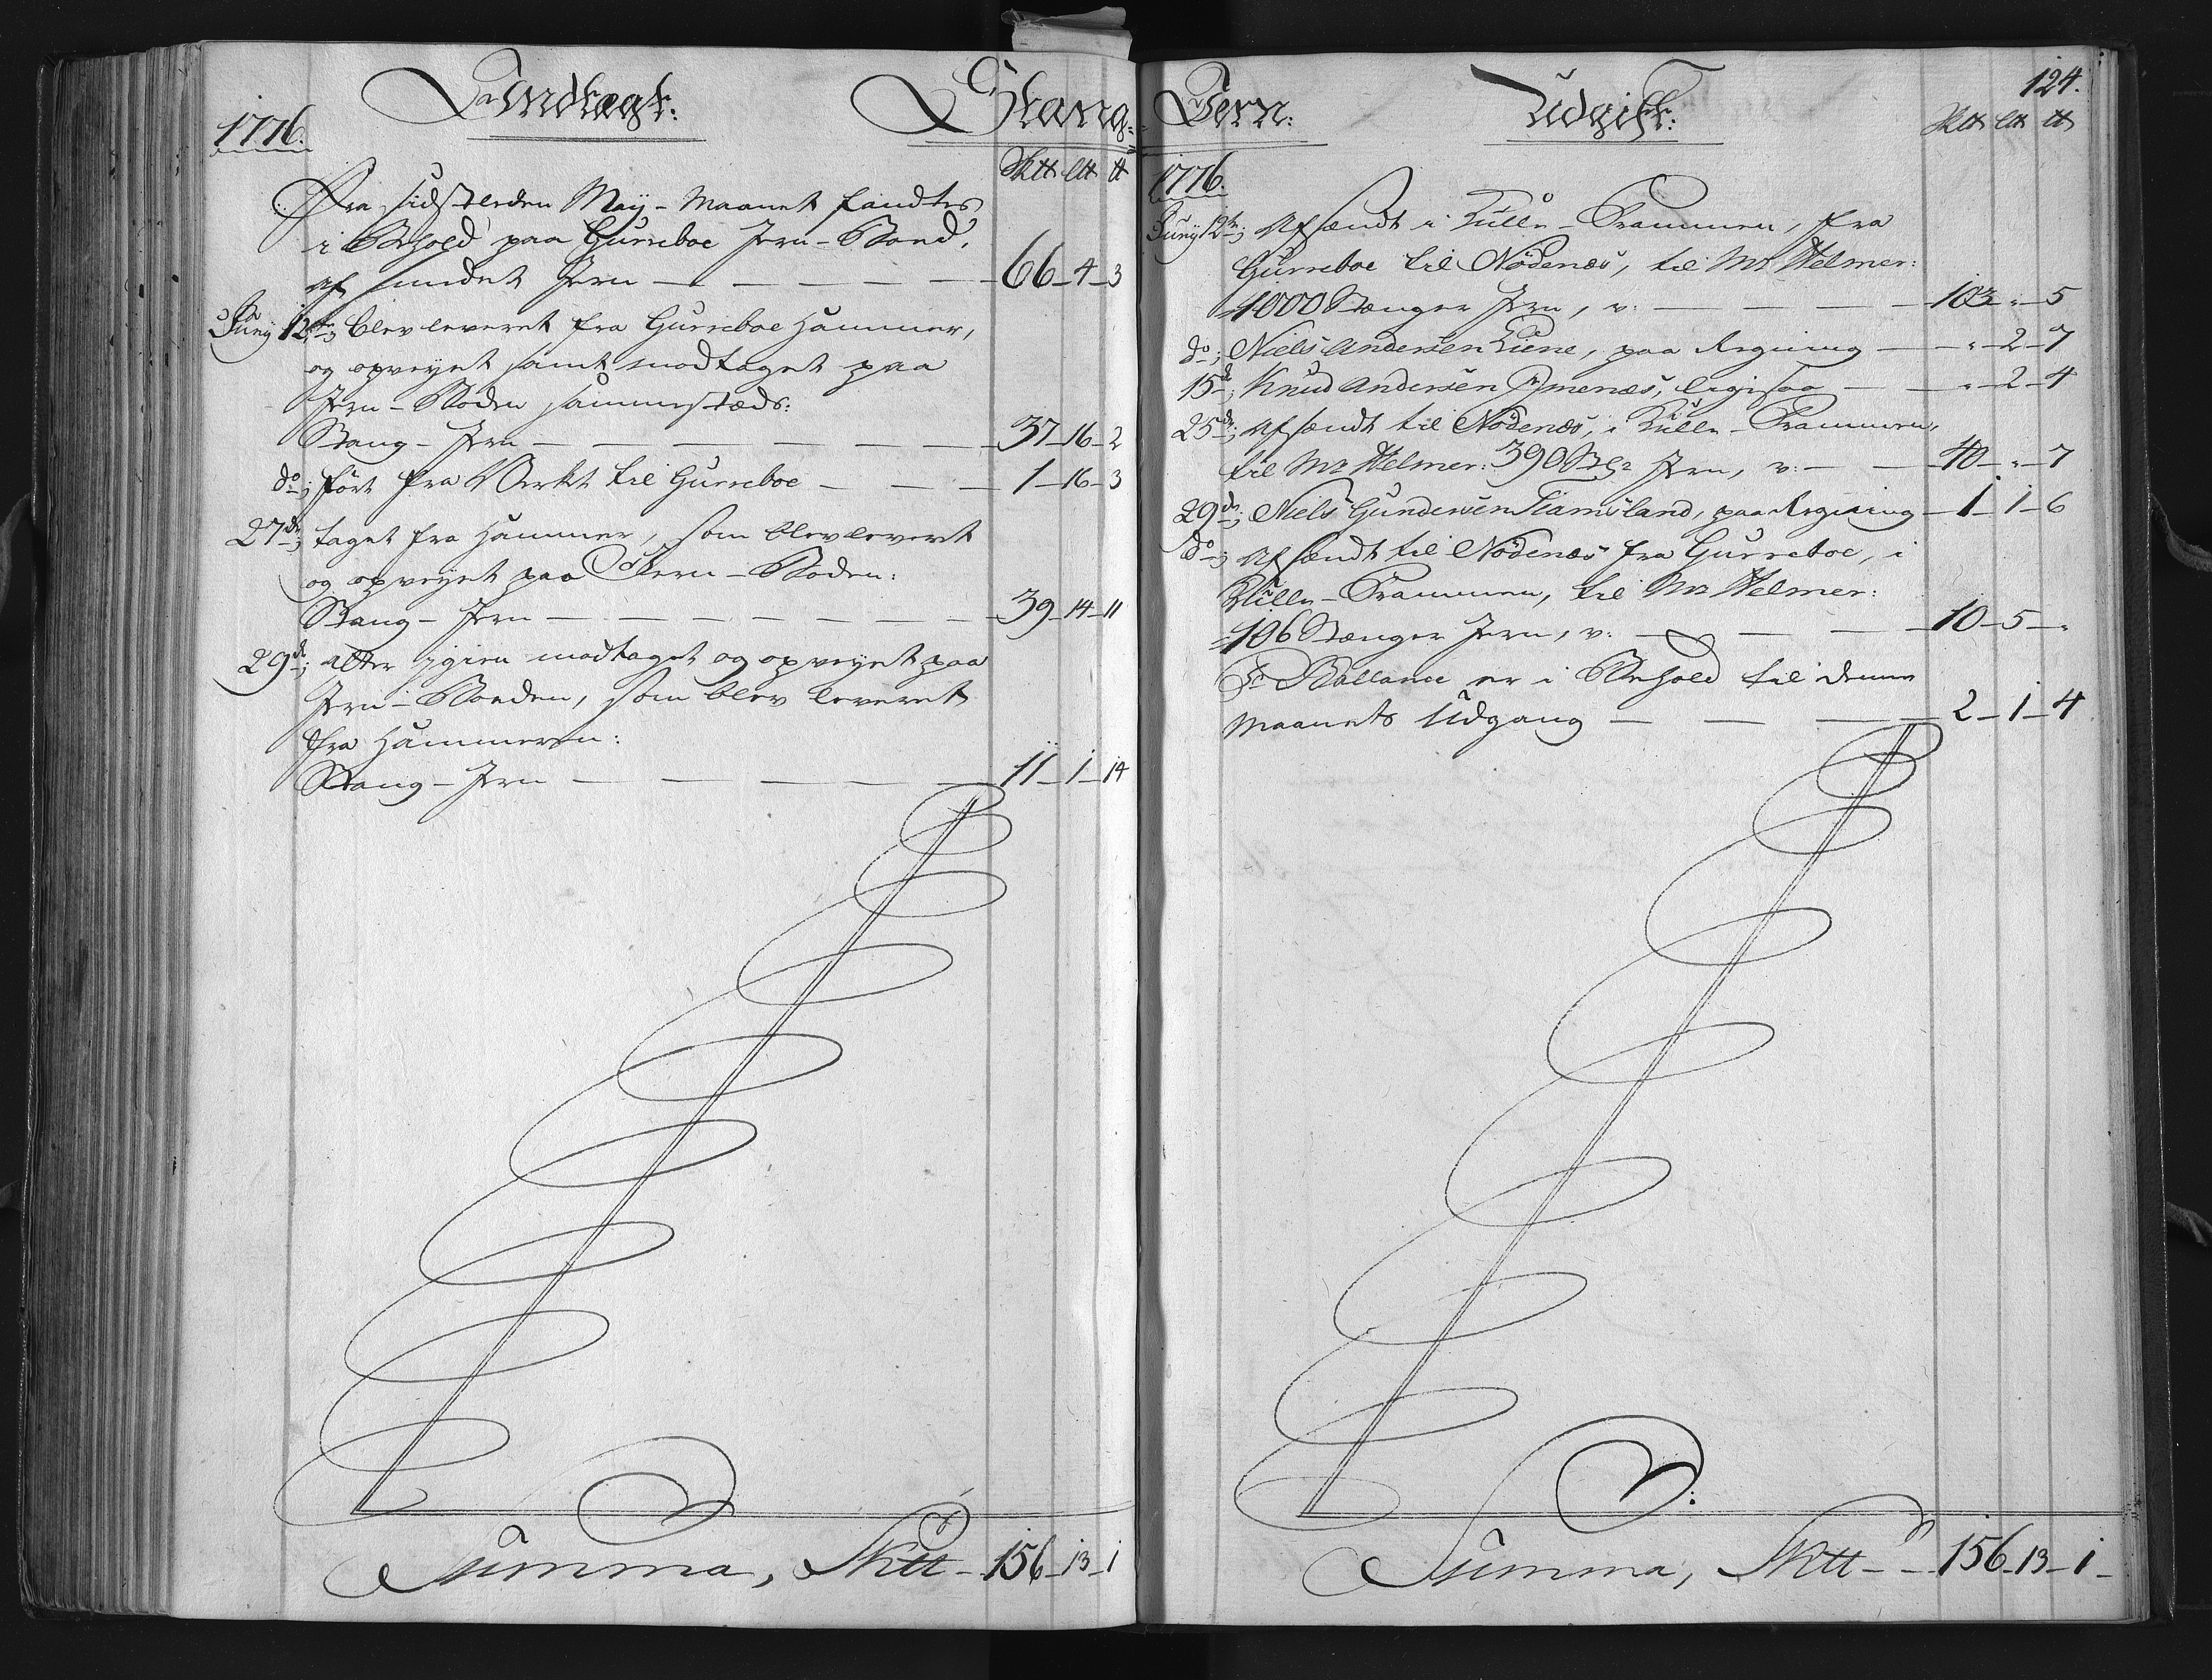 1776.
Indtægt:
Stang-
Sk℔ L℔ ℔
Fra sidstleden May-Maanet fandtes
i Behold paa Gurreboe Jern-Boed,
af smedet Jern — 66-4-3
Juny 12te; blev leveret fra Gurreboe Hammer,
og opveyet samt modtaget paa
Jern-Boden sammestæds:
Stang-Jern — 37-16-2
do; ført fra Værket til Gurreboe — 1-16-3
27de; taget fra Hammer, som blev leveret
og opveyet paa Jern-Boden:
Stang-Jern — 39-14-11
29de; atter igien modtaget og opveyet paa
Jern-Boeden, som blev leveret
fra Hammeren:
Stang-Jern — 11-1-14
Summa, Sk℔ - 156-13-1
Jern:
Udgift:
124.
Sk℔ L℔ ℔
1776.
Juny 12te; afsendt i Kulle-Prammen, fra
Gurreboe til Nødenæs, til Mr Helmer:
1000 Stænger Jern, v: — 103 - " - 5
do; Niels Andersen Liene, paa Regning — " - 2 - 7
15de; Knud Andersen Ymenæs, ligesaa — " - 2 - 4
25de; afsendt til Nødenæs, i Kulle-Prammen,
til Mr Helmer: 390 Stgr Jern, v: — 40 - " - 7
29de; Niels Gundersen Tiamsland, paa Regning — 1-1-6
do; afsendt til Nødenæs fra Gurreboe, i
Kulle-Prammen, til Mr Helmer:
106 Stænger Jern, v: — 10-5-"
Pr Ballance er i Behold til denne
Maanets Udgang — 2-1-4
Summa, Sk℔ - 156-13-1-